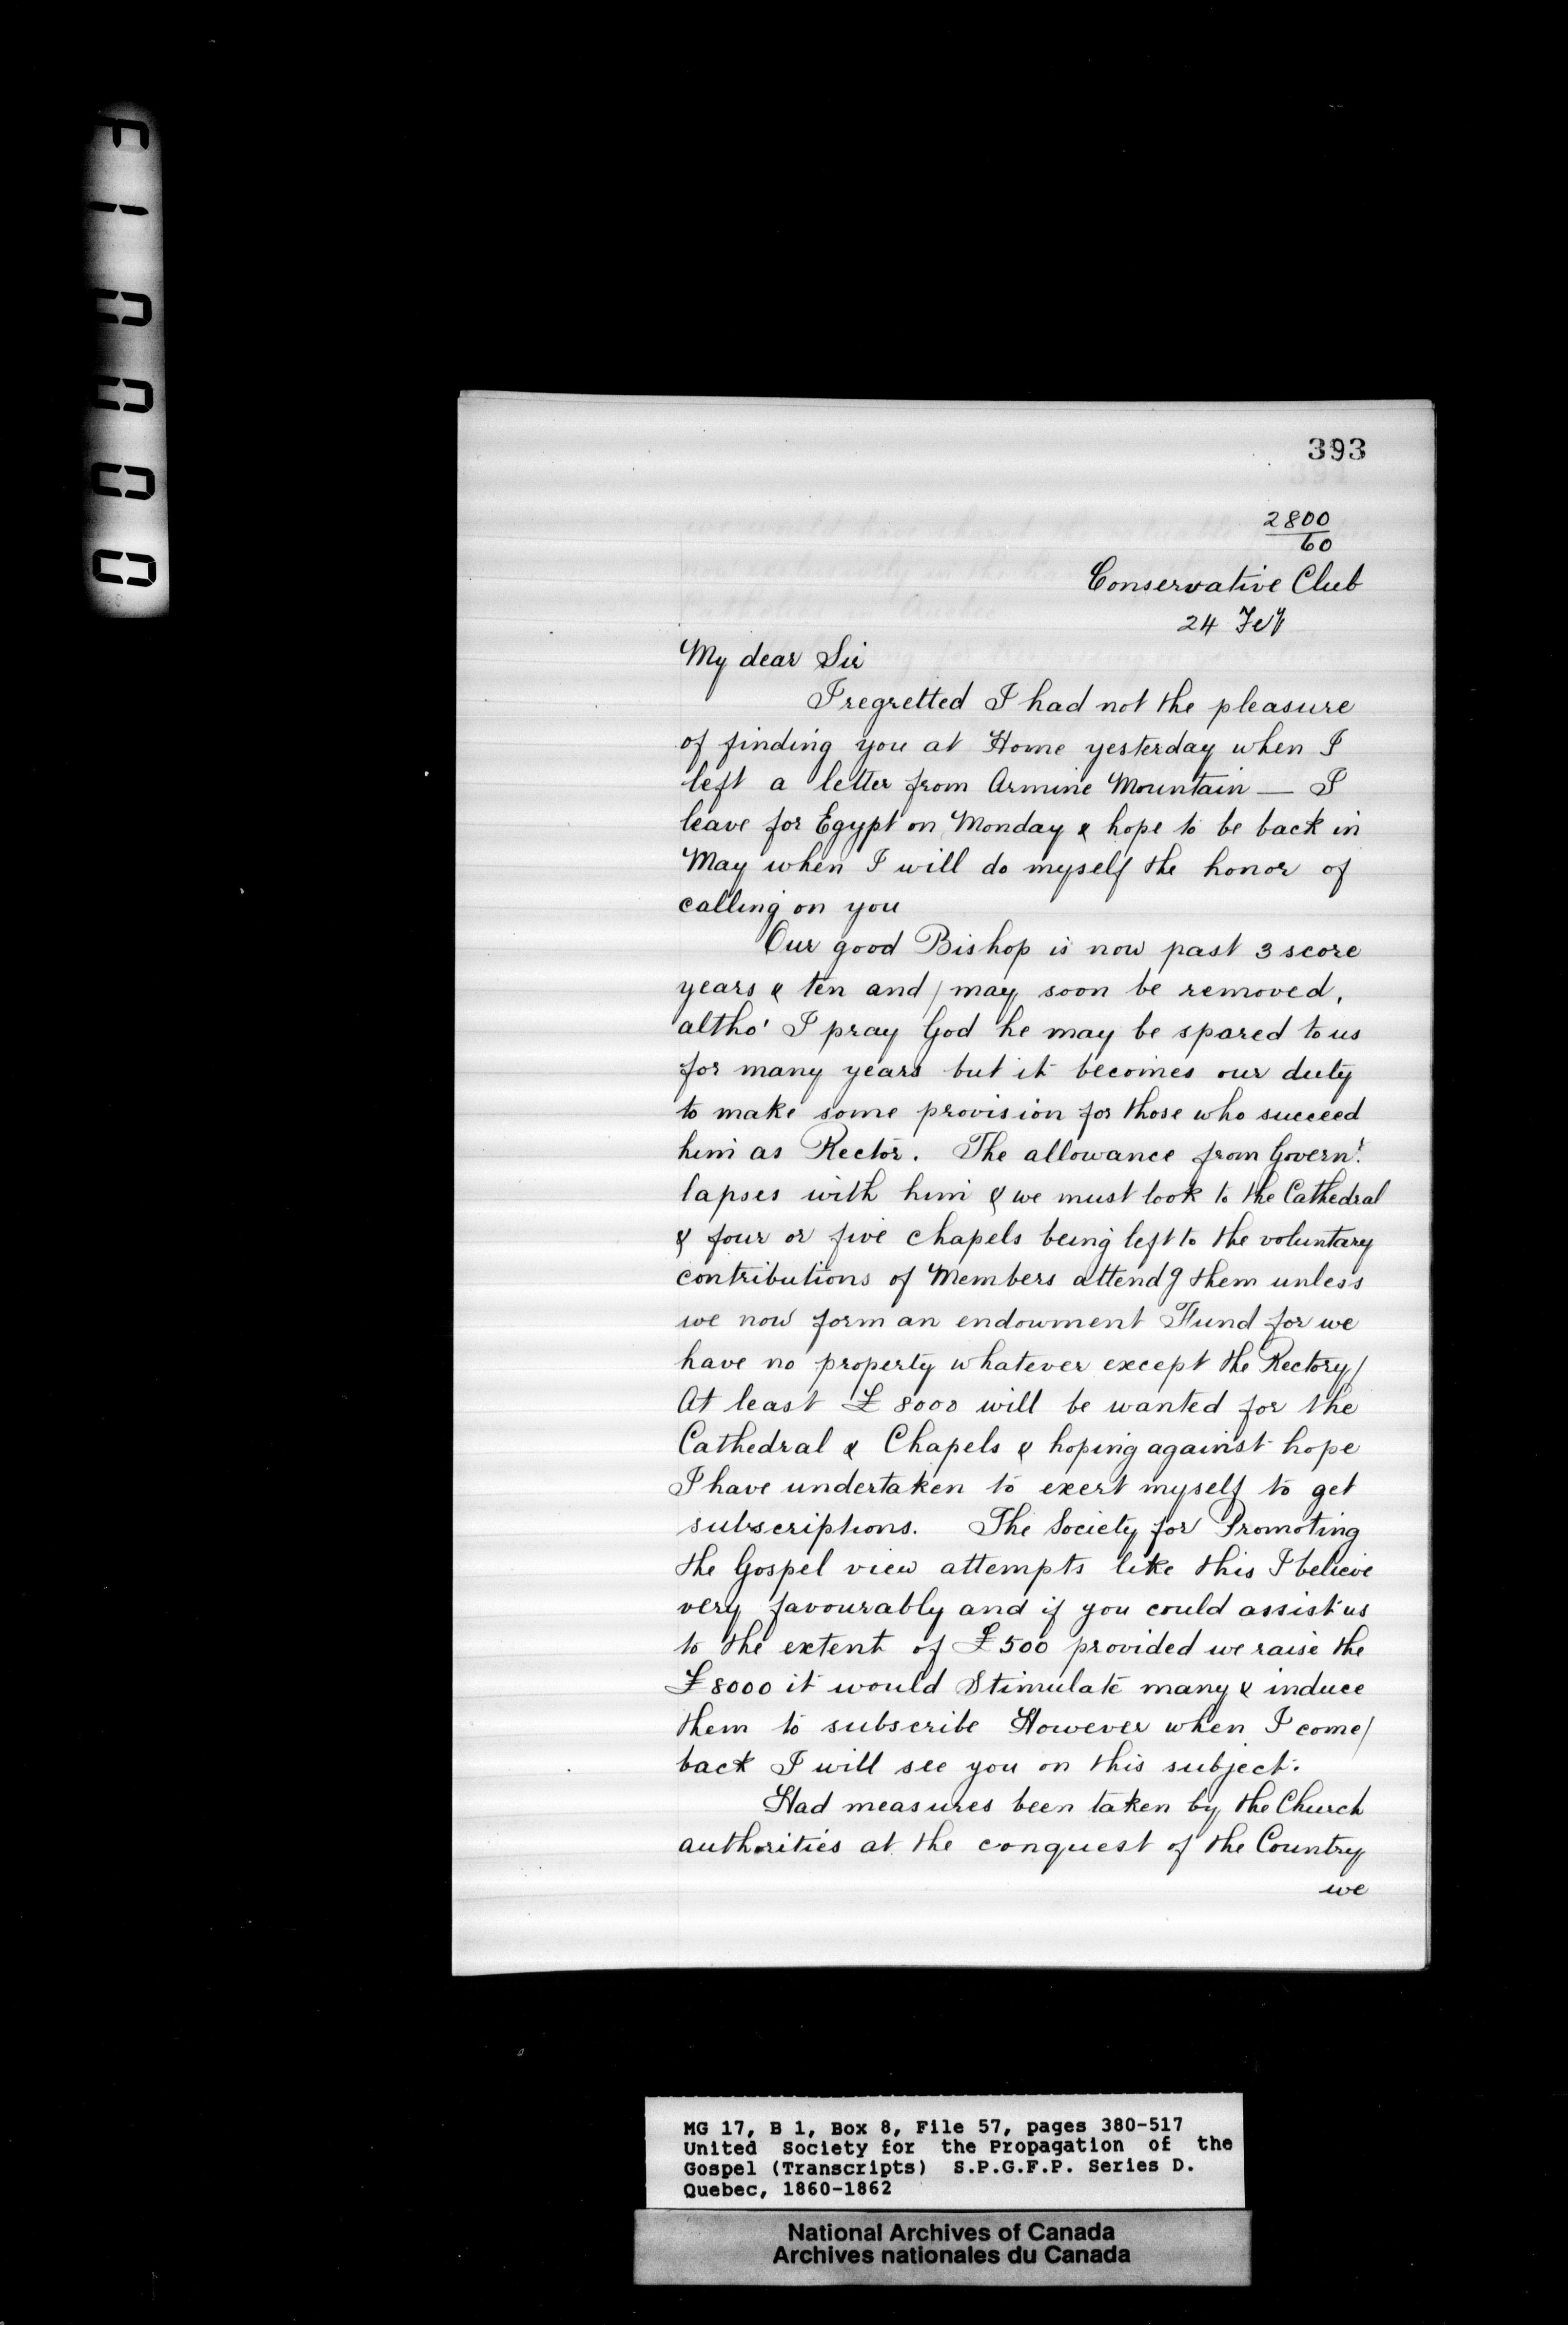 F10000
393
2800
60
Conservative Club
24 Feʸ
My dear Sir
I regretted I had not the pleasure
of finding you at Home yesterday when I
left a letter from Armine Mountain — I
leave for Egypt on Monday & hope to be back in
May when I will do myself the honor of
calling on you
Our good Bishop is now past 3 score
years & ten and / may soon be removed,
altho' I pray God he may be spared to us
for many years but it becomes our duty
to make some provision for those who succeed
him as Rector. The allowance from Governᵗ.
lapses with him & we must look to the Cathedral
& four or five chapels being left to the voluntary
contributions of Members attendg them unless
we now form an endowment Fund for we
have no property whatever except the Rectory/
At least £ 8000 will be wanted for the
Cathedral & Chapels & hoping against hope
I have undertaken to exert myself to get
subscriptions. The Society for Promoting
the Gospel view attempts like this I believe
very favourably and if you could assist us
to the extent of £500 provided we raise the
£8000 it would Stimulate many & induce
them to subscribe However when I come/
back I will see you on this subject.
Had measures been taken by the Church
authorities at the conquest of the Country
we
MG 17, B 1, Box 8, File 57, pages 380-517
United Society for the Propagation of the
Gospel (Transcripts) S.P.G.F.P. Series D.
Quebec, 1860-1862
National Archives of Canada
Archives nationales du Canada